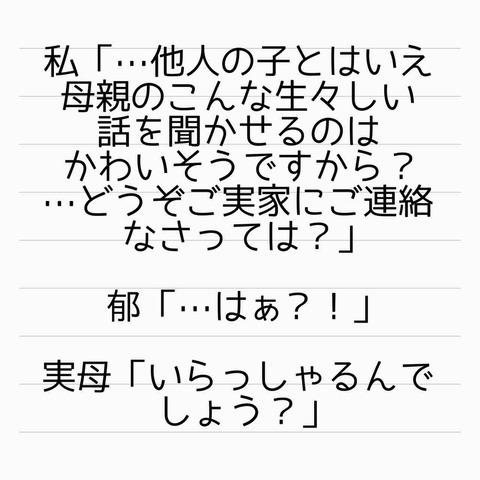 私「…他人の子とはいえ
母親のこんな生々しい
話を聞かせるのは
かわいそうですから？
…どうぞご実家にご連絡
なさっては？」
郁「…はぁ？！」
実母「いらっしゃるんで
しょう？」